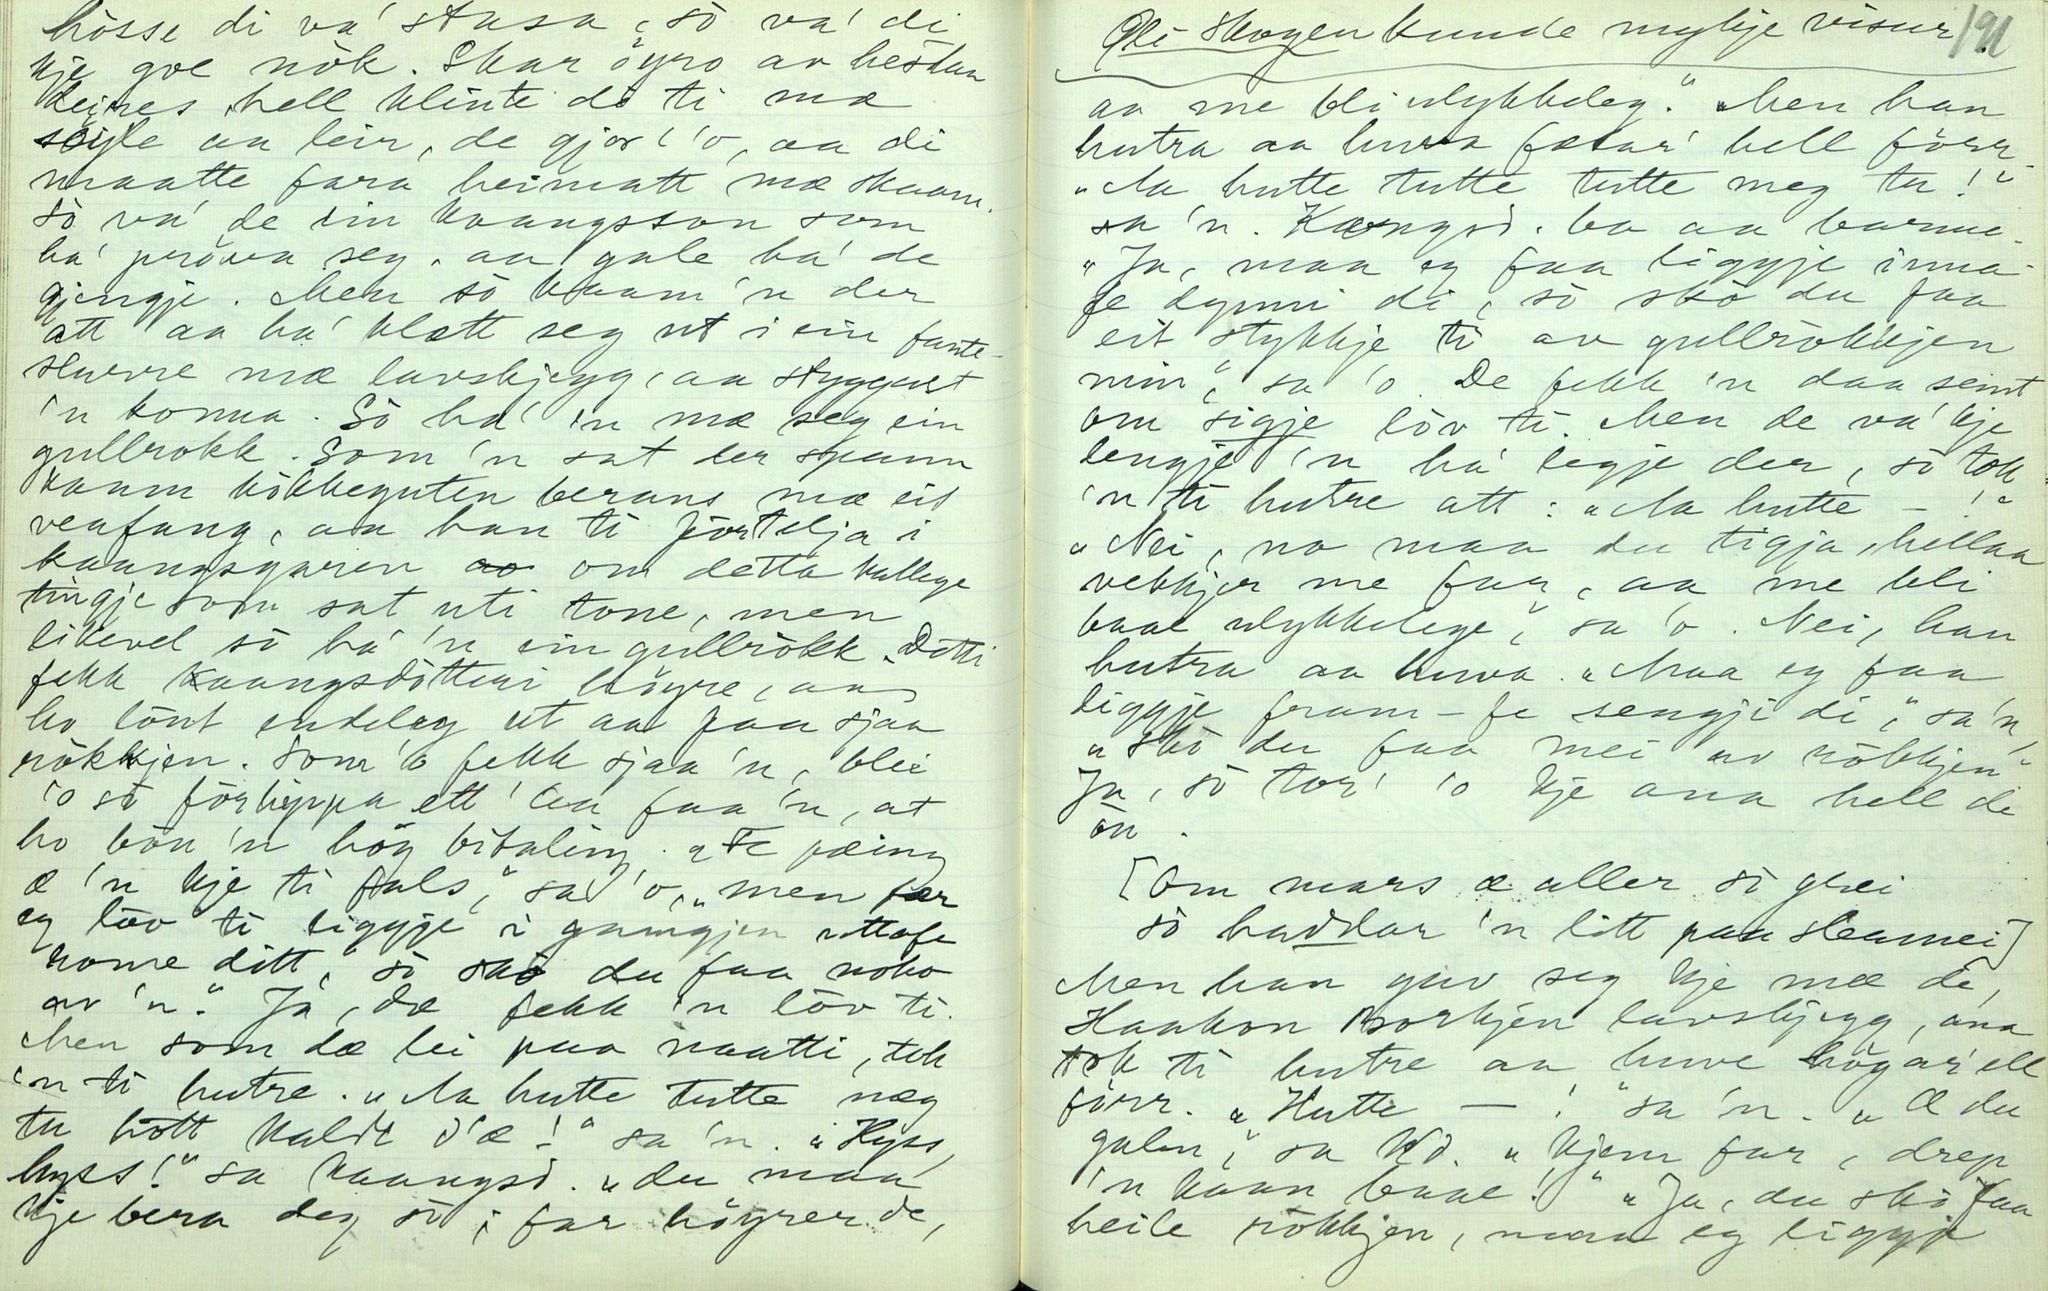 hösse di va' stasa, sò va' di
kje goe nòk. Skar öyro av hestan
deires, hell klinte dò ti mæ
söyle aa leir, de gjor 'o, aa di
maatte fara heimatt mæ skam.
Sò va' de ein kaangsson som
ha' pröva seg, aa gale ha' de
gjengje. Men sò kaam 'n der
att aa ha' klætt seg ut i ein fante-
slurre mæ lavskjegg, aa styggast
'n konna. Sò ha' 'n mæ seg ein
gullrokk. Som 'n sat der spann
kaam kökkeguten beraus mæ eit
veafang, aa han ti förtelja i
kaangsgaren om detta kallege
tingje som sat uti tone, men
likevel sò ha' 'n ein gullròkk. Detti
fekk kaangsdòtteri höyre, aa
ho lönt endeleg ut aa faa sjaa
ròkkjen. Som 'o fekk sjaa 'n, blei
'o sò förhippa ett 'aa faa 'n, at
ho bòu 'n hög bitaling. "Fe pæing
æ 'n kje ti fals," sa 'o, "men fær
eg löv ti liggje i gangjen uttafe
rome ditt, sò skò du faa noko
av 'n." Ja, dæ fekk 'n löv ti.
Men som dæ lei paa naatti, tok
'n ti hutre. "Aa hutte tutte næg
tu hòtt kaldt d'æ!" sa 'n. "Hyss,
hyss!" sa kaangsd. "du maa
kje bera deg sò; far höyrer de,
Ole Skogen kunde mykje visur. 191
aa me bli ulykkeleg." Men han
hutra aa huva fælar' hell förr.
"Aa hutte tutte tutte meg tu!"
sa 'n. Kaangsd. ba aa barma.
"Ja, maa eg faa liggje inna-
fe dynni di, sò skò du faa
eit stykkje ti av gullròkkjen
min," sa 'o. De fekk 'n daa seint
om sigje löv ti. Men de va' kje
lengje 'n ha' legje der, sò tok
'n ti hutre att: "Aa hutte – !"
"Nei, no maa du tigja, hellaa
vekkjer me far, aa me bli
baae ulykkelege," sa 'o. Nei, han
hutra aa huva. "Maa eg faa
liggje fram-fe sengji di," sa 'n,
"skò du faa mei av ròkkjen"
Ja, sò tor' 'o kje ana hell de
òu.
[Om mars æ aller sò grei
sò haddar 'n litt paa sleamei]
Men han gav seg kje mæ de,
Haakon Borkjen lavskjegg, ana
tok ti hutre aa huve högar' ell
förr. "Hutte – !" sa 'n. "Æ du
galen," sa Kd. "kjem far, drep
'n kaan baae!" "Ja, du skò faa
heile ròkkjen, maa eg liggje